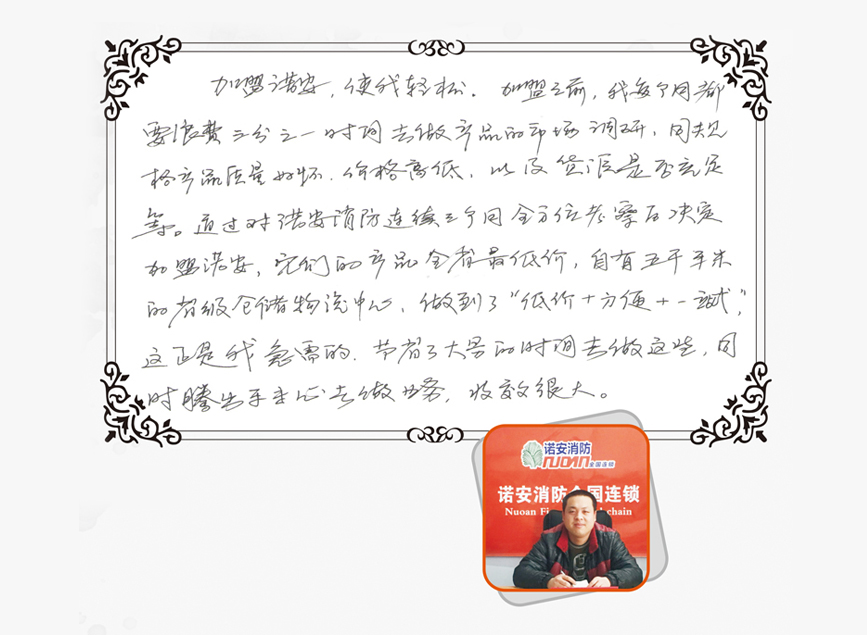 加盟诺安，使我轻松。加盟之前，我每个月都
要浪费三分之一时间去做产品的市场调研，同规
格产品质量好坏、价格高低、以及货源是否充足
等。通过对诺安消防连锁三个月全方位考察后决定
加盟诺安，它们的产品全省最低价，自有五千平米
的省级仓储物流中心，做到了“低价+方便+一站式”，
这正是我急需的，节省了大量的时间去做这些，同
时腾出手来心去做业务，收效很大。
诺安消防
NUOAN 全国连锁
诺安消防全国连锁
Nuoan Fi chain